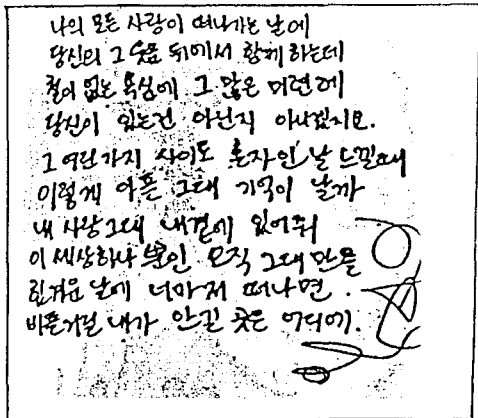 나의 모든 사랑이 떠나가는 날에
당신의 그 웃음 뒤에서 함께 하는데
철이 없는 욕심에 그 많은 미련에
당신이 있는건 아닌지 아니겠지요.
그 여린 가지 사이로 혼자인 날 느낄때
이렇게 아픈 그대 기억이 날까
내 사랑 그대 내곁에 있어줘
이 세상하나 뿐인 오직 그대 만을
힘겨운 날에 너마저 떠나면.
비틀거릴 내가 안길 곳은 어디에.